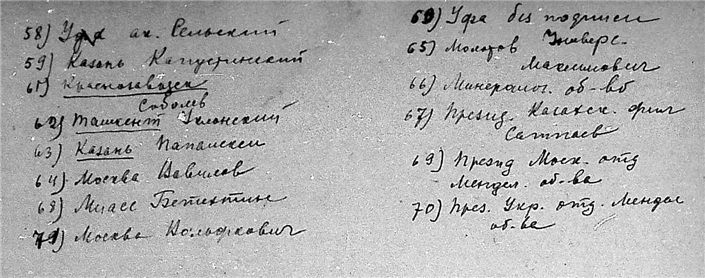 58) Уфа ак. Сельский
59) Казань Капустинский
61) Краснозаводск
Соболев
62) Ташкент Уклонский
63) Казань
64) Москва Вавилов
68) Миасс Бетехтин
71) Москва Вольфкович
60) Уфа без подписи
65) Молотов Универс.
Максимович
66) Минералог. об-во
67) Презид. Казахск. фил
Сатпаев
69) Презид Моск. отд
Мендел. об-ва
70) През. Укр. отд. Мендел
об-ва